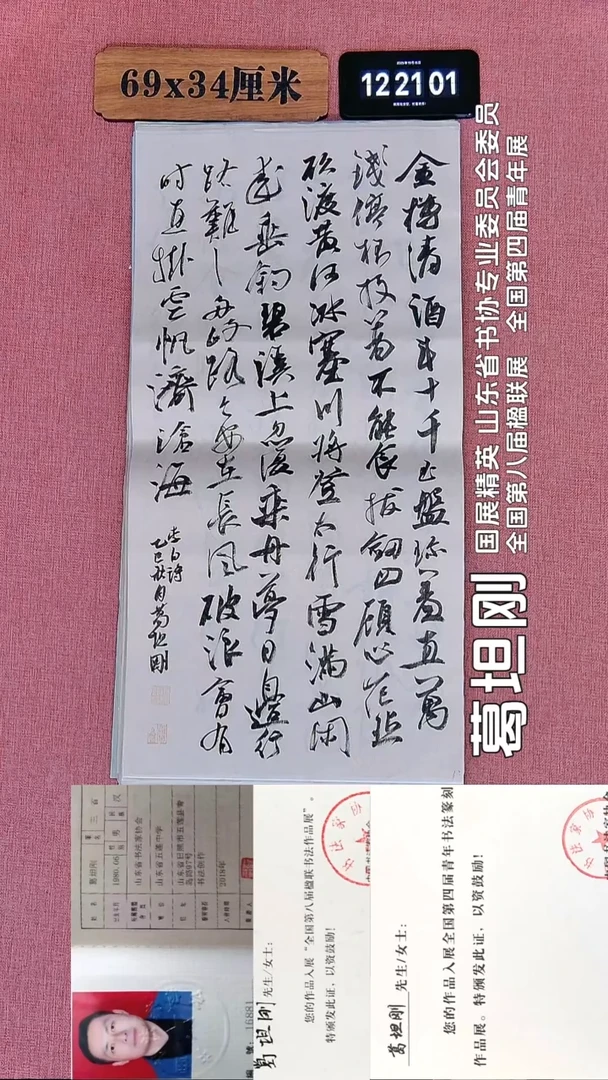 69x34厘米
12 21 01
金樽清酒斗十千玉盤珍羞直萬
錢停杯投箸不能食拔劍四顧心茫然
欲渡黃河冰塞川將登太行雪滿山閑
來垂釣碧溪上忽復乘舟夢日邊行
路難〻多歧路今安在長風破浪會有
時直掛雲帆濟滄海
李白詩
乙巳秋月葛坦剛
国展精英 山东省书协专业委员会委员
全国第八届楹联展 全国第四届青年展
葛坦刚
葛坦刚
山东省书法家协会
山东省五莲中学
书法创作
2018年
16881
葛坦刚 先生/女士：
您的作品入展“全国第八届楹联书法作品展”。
特颁发此证，以资鼓励！
葛坦刚 先生/女士：
您的作品入展全国第四届青年书法篆刻
作品展。特颁发此证，以资鼓励！